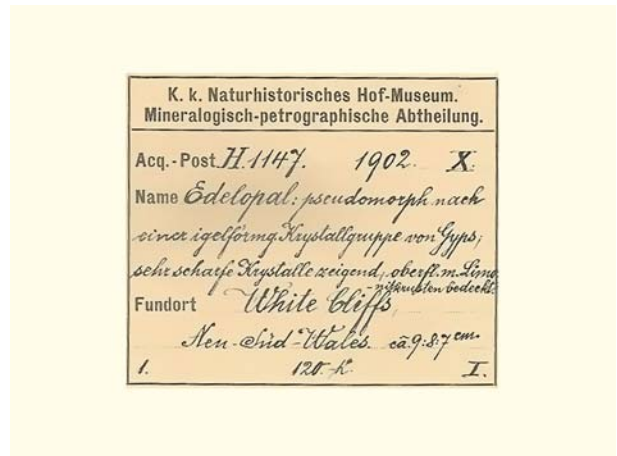 K. k. Naturhistorisches Hof-Museum.
Mineralogisch-petrographische Abtheilung.
Acq.-Post. H. 1147. 1902. X.
Name Edelopal: pseudomorph nach
einer igelförmg. Krystallgruppe von Gyps;
sehr scharfe Krystalle zeigend, oberfl. m. Limo-
nitkrusten bedeckt.
Fundort White Cliffs,
Neu-Süd-Wales. ca 9:8:7 cm.
1. 120.- K. I.